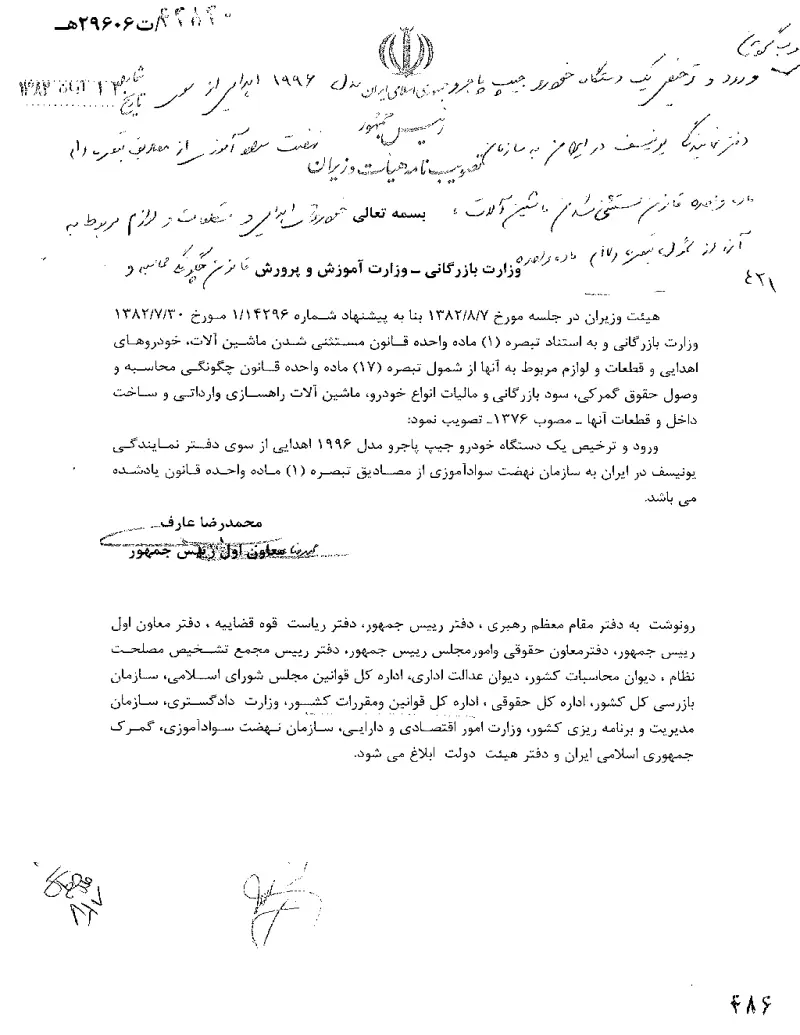 ۴۴۵۴۰/ت۲۹۶۰۶هـ
ورود و ترخیص یک دستگاه خودرو جیپ پاجرو مدل ۱۹۹۶ اهدایی از سوی
جمهوری اسلامی ایران
شماره
تاریخ ۱۳ آبان ۱۳۸۲
رئیس جمهور
دفتر نمایندگی یونیسف در ایران به سازمان نهضت سواد آموزی از مصادیق تبصره (۱)
تصویب نامه هیأت وزیران
ماده واحده قانون مستثنی شدن ماشین آلات، خودروهای اهدایی و قطعات و لوازم مربوط به
بسمه تعالی
آنها از شمول تبصره (۱۷) ماده واحده قانون چگونگی محاسبه و
وزارت بازرگانی ـ وزارت آموزش و پرورش
۴۲۱
هیئت وزیران در جلسه مورخ ۱۳۸۲/۸/۷ بنا به پیشنهاد شماره ۱/۱۴۲۹۶ مورخ ۱۳۸۲/۷/۳۰
وزارت بازرگانی و به استناد تبصره (۱) ماده واحده قانون مستثنی شدن ماشین آلات، خودروهای
اهدایی و قطعات و لوازم مربوط به آنها از شمول تبصره (۱۷) ماده واحده قانون چگونگی محاسبه و
وصول حقوق گمرکی، سود بازرگانی و مالیات انواع خودرو، ماشین آلات راهسازی وارداتی و ساخت
داخل و قطعات آنها ـ مصوب ۱۳۷۶ـ تصویب نمود:
ورود و ترخیص یک دستگاه خودرو جیپ پاجرو مدل ۱۹۹۶ اهدایی از سوی دفتر نمایندگی
یونیسف در ایران به سازمان نهضت سوادآموزی از مصادیق تبصره (۱) ماده واحده قانون یادشده
می باشد.
محمدرضا عارف
معاون اول رییس جمهور
رونوشت به دفتر مقام معظم رهبری ، دفتر رییس جمهور، دفتر ریاست قوه قضاییه ، دفتر معاون اول
رییس جمهور، دفترمعاون حقوقی وامورمجلس رییس جمهور، دفتر رییس مجمع تشخیص مصلحت
نظام ، دیوان محاسبات کشور، دیوان عدالت اداری، اداره کل قوانین مجلس شورای اسلامی، سازمان
بازرسی کل کشور، اداره کل حقوقی ، اداره کل قوانین ومقررات کشور، وزارت دادگستری، سازمان
مدیریت و برنامه ریزی کشور، وزارت امور اقتصادی و دارایی، سازمان نهضت سوادآموزی، گمرک
جمهوری اسلامی ایران و دفتر هیئت دولت ابلاغ می شود.
۴۸۶